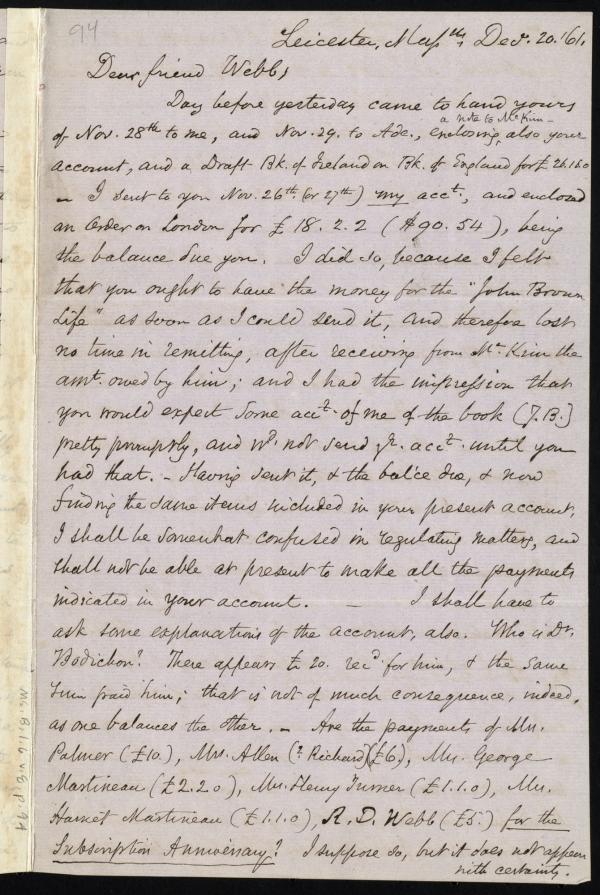 94
Leicester, Masstts, Decr. 20. '61.
Dear friend Webb;
Day before yesterday came to hand yours
a note to McKim -
of Nov. 28th to me, and Nov. 29. to Ade., enclosing, also your
account, and a Draft Bk. of Ireland on Bk. of England for £26.16.0
— I sent to you Nov. 26th. (or 27th) my acct., and enclosed
an order on London for £18.2.2 ($90.54), being
the balance due you. I did so, because I felt
that you ought to have the money for the "John Brown
Life" as soon as I could send it, and therefore lost
no time in remitting, after receiving from McKim the
amt. owed by him; and I had the impression that
you would expect some acct. of me of the book (J.B.)
pretty promptly, and wd. not send yr. acct. until you
had that. — Having sent it, & the balce due, & now
finding the same items included in your present account,
I shall be somewhat confused in regulating matters, and
shall not be able at present to make all the payments
indicated in your account. — I shall have to
ask some explanations of the account, also. Who is Dr.
Bodichon? There appears £20. recd. for him, & the same
sum paid him; that is not of much consequence, indeed,
as one balances the other. — Are the payments of Mrs.
Palmer (£10.), Mrs. Allen (? Richard) (£6), Mrs. George
Martineau (£2.2.0), Mrs. Henry Turner (£1.1.0), Mrs.
Harriet Martineau (£1.1.0), R. D. Webb (£5.) for the
Subscription Anniversary? I suppose so, but it does not appear
with certainty.
Ms. B.1.6 v.8, p. 94